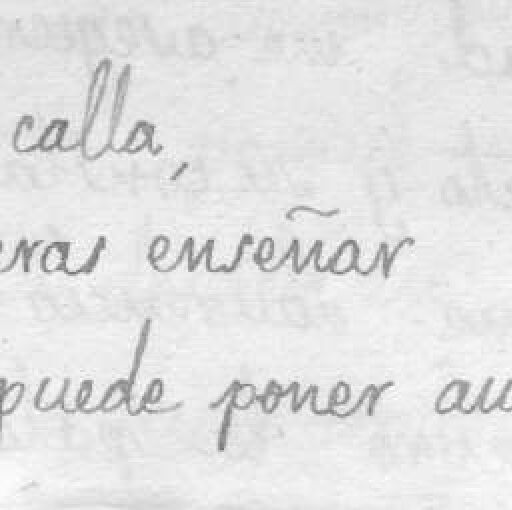 calla,
eras enseñar
puede poner au